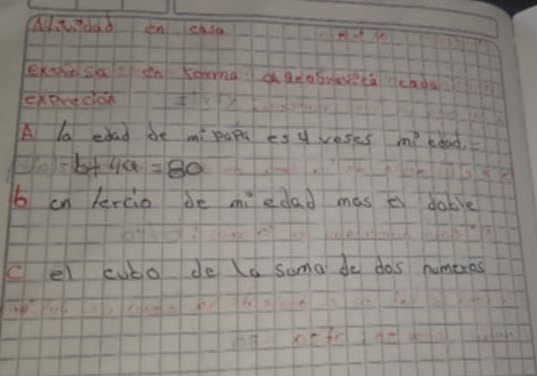 Atividad en casa
expresa en forma algebraica cada
expreción
A la edad de mi papa es 4 veses mi edad.
= b+4a = 80
b en tercio de mi edad mas el doble
C el cubo de la soma de dos numeros